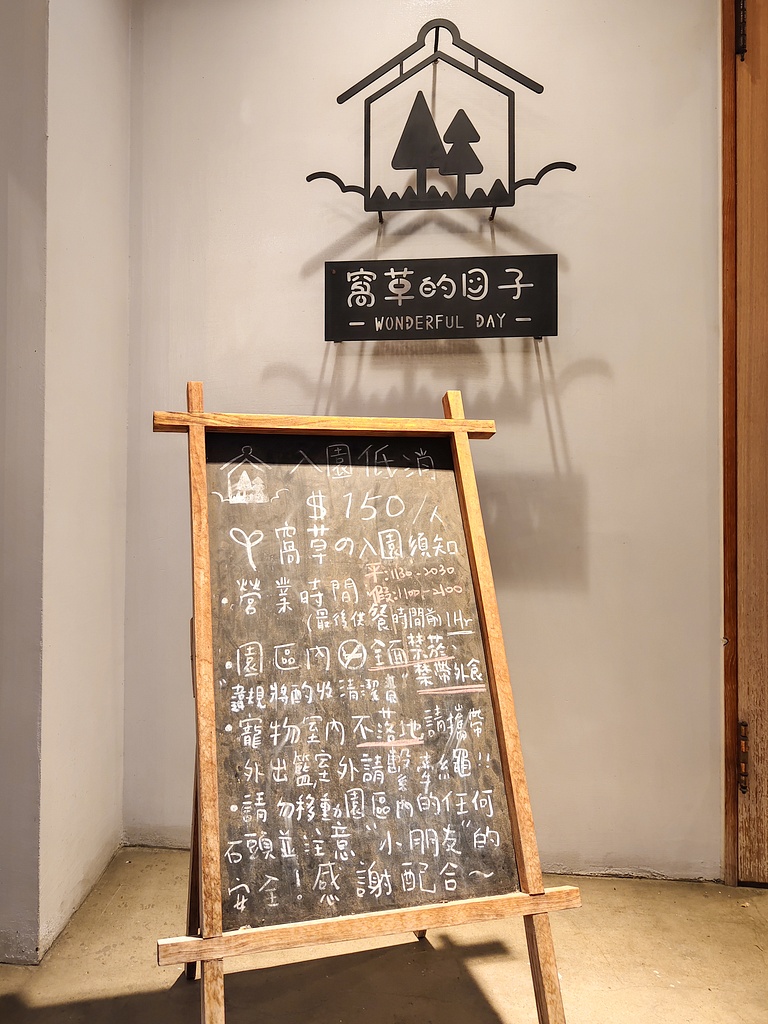 窩草的日子
WONDERFUL DAY
入園低消
$150/人
窩草の入園須知
•營業時間 平:1130~2030
假:1100~2100
(最後供餐時間前1Hr
•園區內全面禁菸、
禁帶外食
"違規將酌收清潔費"
•寵物室內不落地請攜帶
外出籃室外請繫牽繩!!
•請勿移動園區內的任何
石頭並注意"小朋友"的
安全!感謝配合~